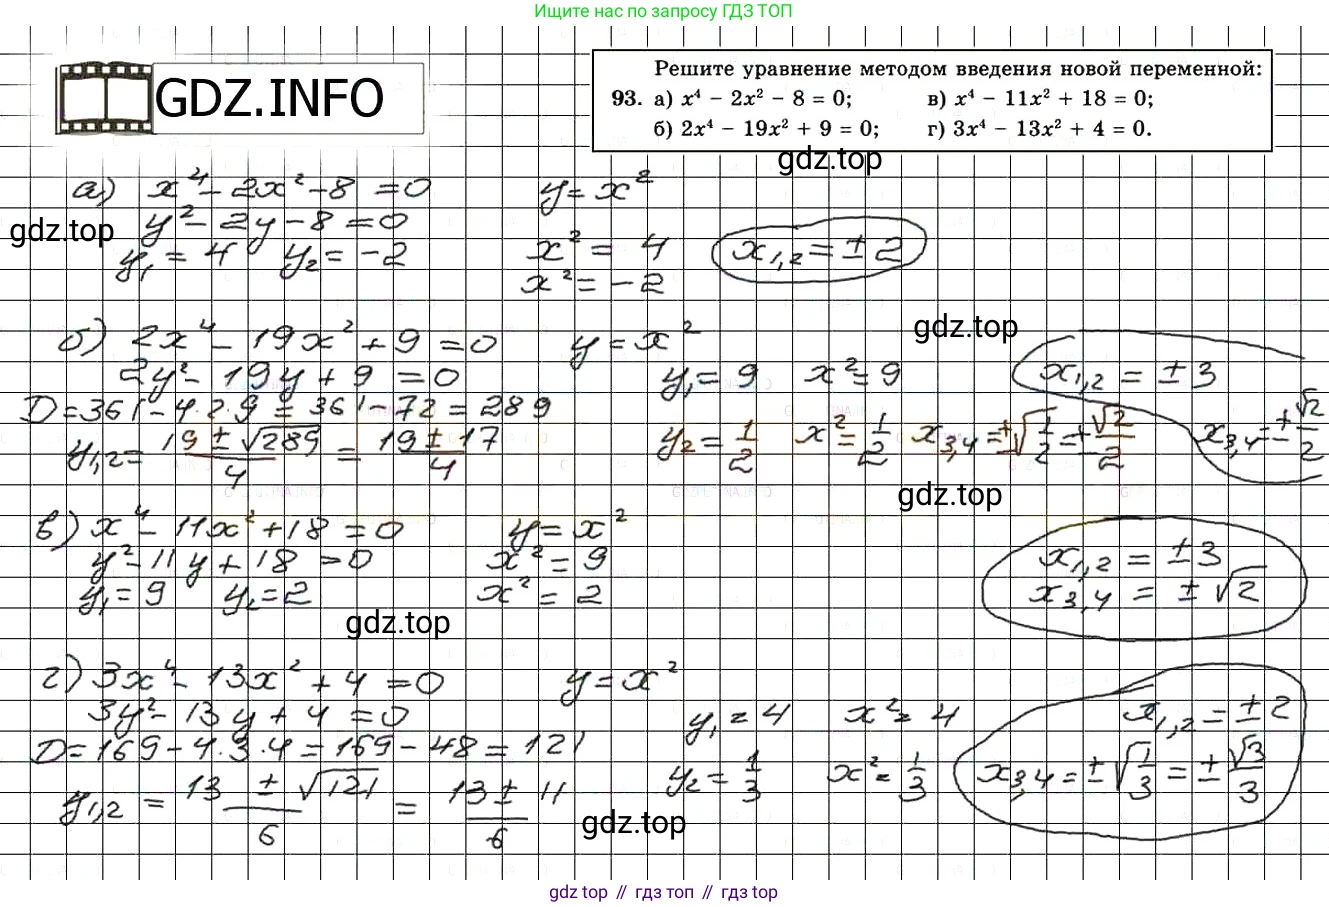 Ищите нас по запросу ГДЗ ТОП
GDZ.INFO
Решите уравнение методом введения новой переменной:
93. а) x⁴ − 2x² − 8 = 0; в) x⁴ − 11x² + 18 = 0;
б) 2x⁴ − 19x² + 9 = 0; г) 3x⁴ − 13x² + 4 = 0.
gdz.top
а) x⁴ − 2x² − 8 = 0 y = x²
gdz.top
y² − 2y − 8 = 0
y₁ = 4 y₂ = −2 x² = 4 x₁,₂ = ± 2
x² = −2
gdz.top
б) 2x⁴ − 19x² + 9 = 0 y = x²
2y² − 19y + 9 = 0 y₁ = 9 x² = 9 x₁,₂ = ± 3
D = 361 − 4·2·9 = 361 − 72 = 289
y₁,₂ = (19 ± √289)/4 = (19 ± 17)/4 y₂ = 1/2 x² = 1/2 x₃,₄ = ±√(1/2) = ± √2/2 x₃,₄ = ± √2/2
gdz.top
в) x⁴ − 11x² + 18 = 0 y = x²
y² − 11y + 18 = 0 x² = 9 x₁,₂ = ± 3
y₁ = 9 y₂ = 2 x² = 2 x₃,₄ = ± √2
gdz.top
г) 3x⁴ − 13x² + 4 = 0 y = x²
3y² − 13y + 4 = 0 y₁ = 4 x² = 4 x₁,₂ = ± 2
D = 169 − 4·3·4 = 169 − 48 = 121
y₁,₂ = (13 ± √121)/6 = (13 ± 11)/6 y₂ = 1/3 x² = 1/3 x₃,₄ = ± √(1/3) = ± √3/3
gdz.top
gdz top // гдз топ // gdz top